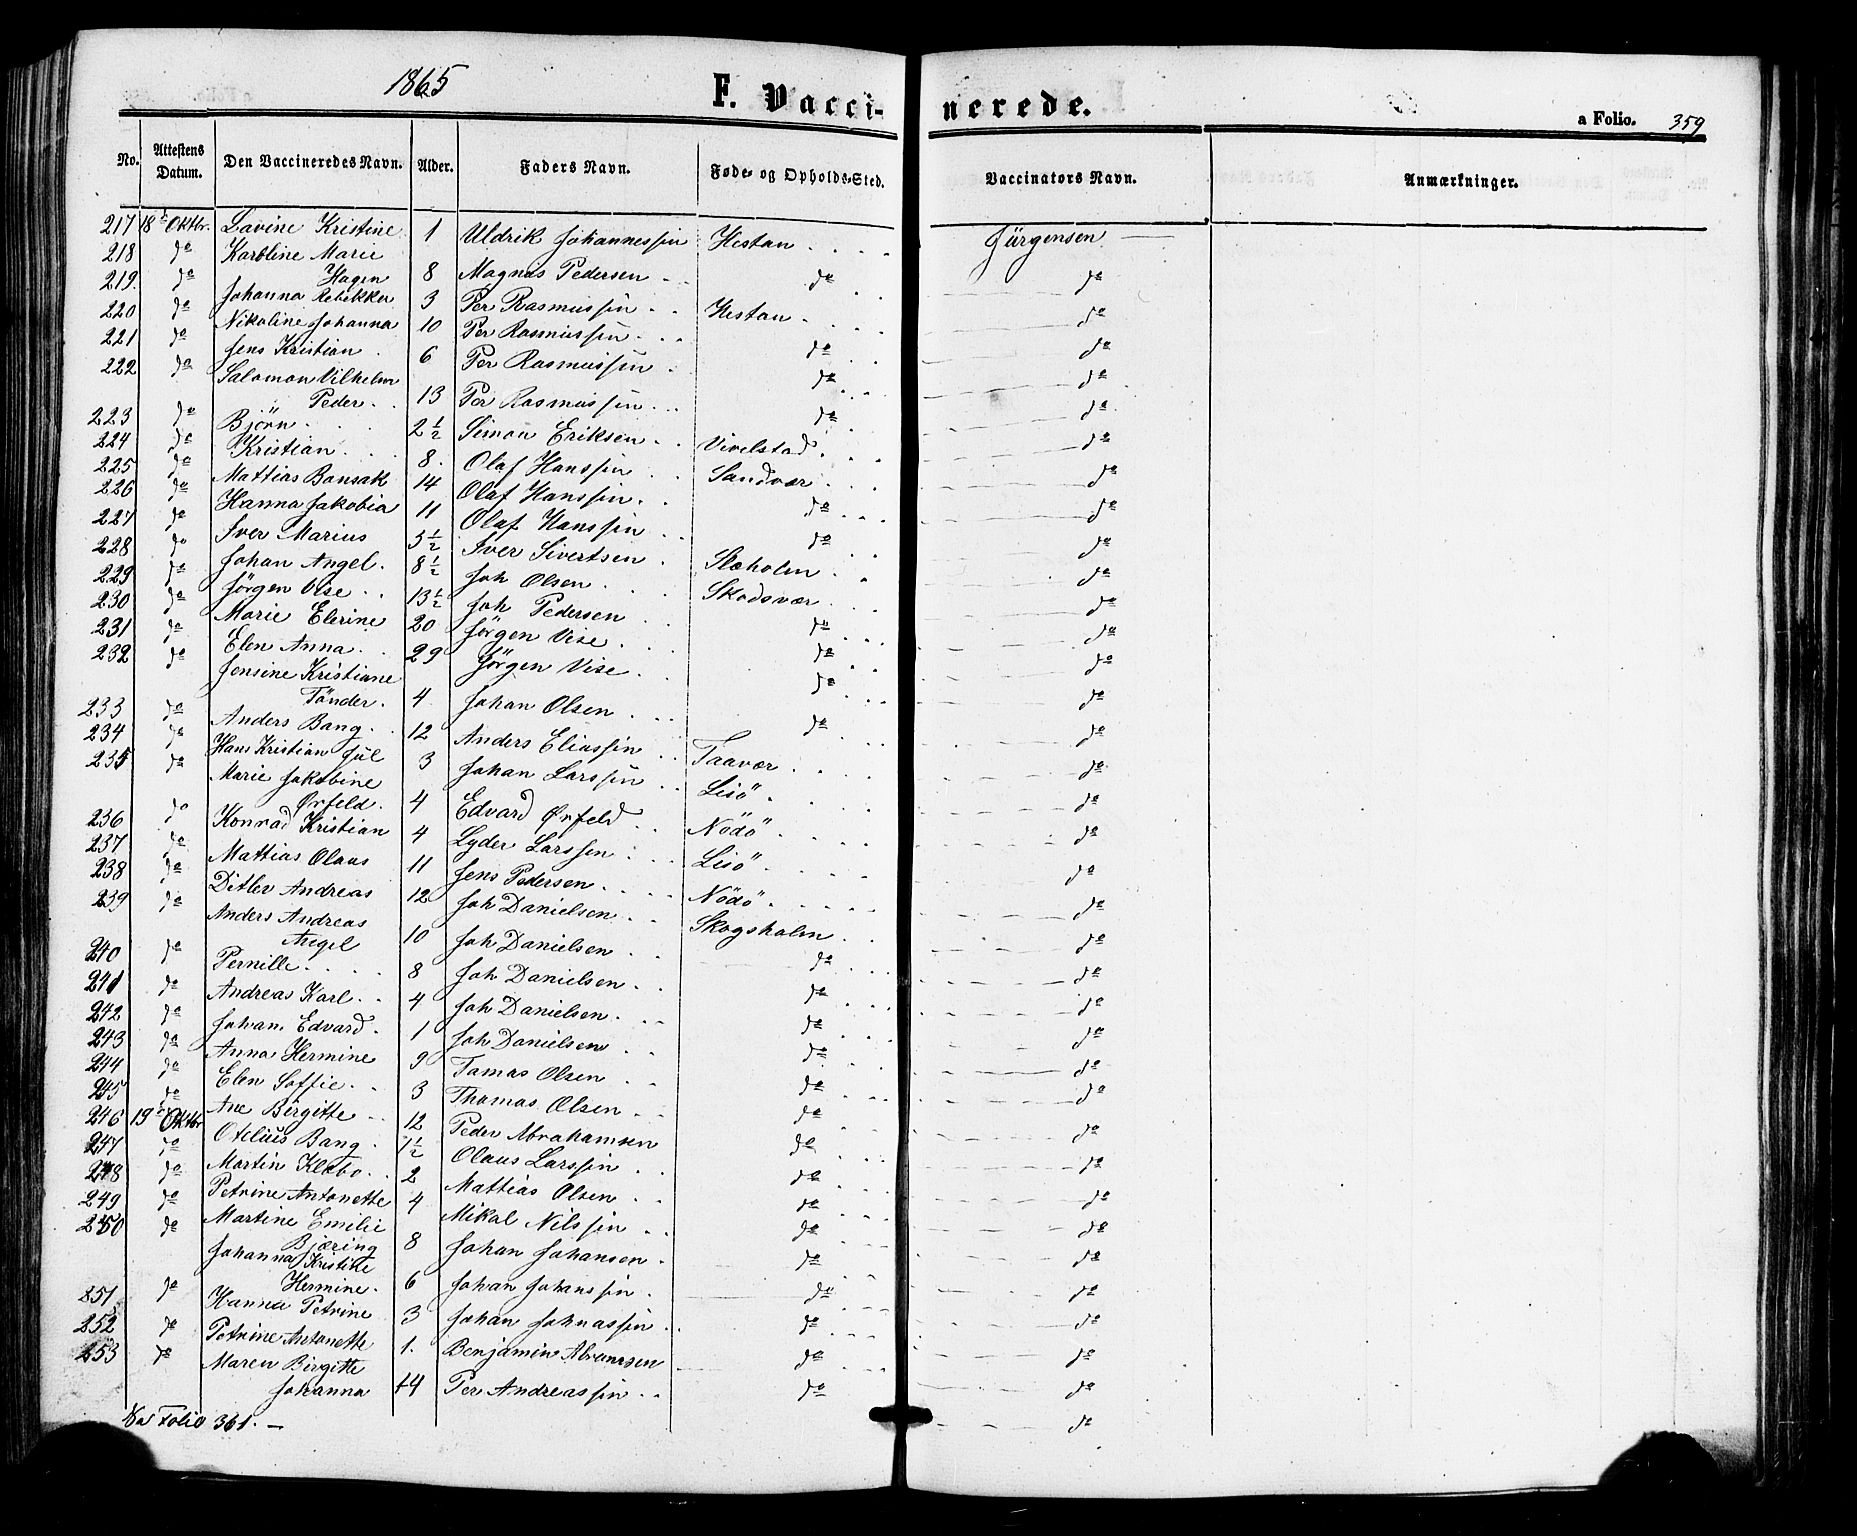 1865 F. Vaccinerede. a Folio. 359
No. Attestens Datum. Den Vaccineredes Navn. Alder. Faders Navn. Føde- og Opholds-Sted. Vaccinators Navn. Anmærkninger.
217 18de Oktbr. Lavine Kristine 1 Uldrik Johannessen Hestan Jürgensen
218 do Karoline Marie Hagen 8 Magnus Pedersen do do
219. do Johanna Rebikker 3 Per Rasmussen Hestan do
220 do Nikoline Johanna 10 Per Rasmussen do do
221 do Jens Kristian 6 Per Rasmussen do do
222 do Salomon Vilhelm Peder 13 Per Rasmussen do do
223 do Björn 2 1/2 Simon Eriksen Vivelstad do
224 do Kristian 8 Olaf Hanssen Sandvær do
225 do Mattias Bonsak 14 Olaf Hanssen do do
226 do Hanna Jakobia 11 Olaf Hanssen do do
227 do Iver Marius 3 1/2 Iver Sivertsen Slæholm do
228 do Johan Angel 8 1/2 Joh Olsen Skodsvær do
229 do Jörgen Vise 13 1/2 Joh Pedersen do do
230 do Marie Elerine 20 Jörgen Vise do do
231 do Elen Anna 29 Jörgen Vise do do
232 do Jensine Kristiane Tönder 4 Johan Olsen do do
233 do Anders Bang 12 Anders Eliassen Taavær do
234 do Hans Kristian Jül 3 Johan Larssen Lisö do
235 do Marie Jakobine Ørfeld 4 Edvard Ørfeld Nödö do
236 do Konrad Kristian 4 Lyder Larssen Lisö do
237 do Mattias Olaus 11 Jens Pedersen Nödö do
238 do Ditlev Andreas 12 Joh Danielsen Skogsholm do
239 do Anders Andreas Angel 10 Joh Danielsen do do
240 do Pernille 8 Joh Danielsen do do
241 do Andreas Karl 4 Joh Danielsen do do
242 do Johan Edvard 1 Joh Danielsen do do
243 do Anna Hermine 9 Tomas Olsen do do
244 do Elen Soffie 3 Thomas Olsen do do
245 do Ane Birgitte 12 Peder Abrahamsen do do
246 19de Oktbr Otelius Bang 1 1/2 Olaus Larssen do do
247 do Martin Klæbo 2 Mattias Olsen do do
248 do Petrine Antonette 4 Mikal Nilssen do do
249 do Martine Emilie Bjæring 8 Johan Johansen do do
250 do Johanna Kristine Hermine 6 Johan Johanssen do do
251 do Hanna Petrine 3 Johan Johnassen do do
252 do Petrine Antonette 1 Benjamin do do
253 do Maren Birgitte Johanna 14 Per Andreassen do do
do
Folio 361.